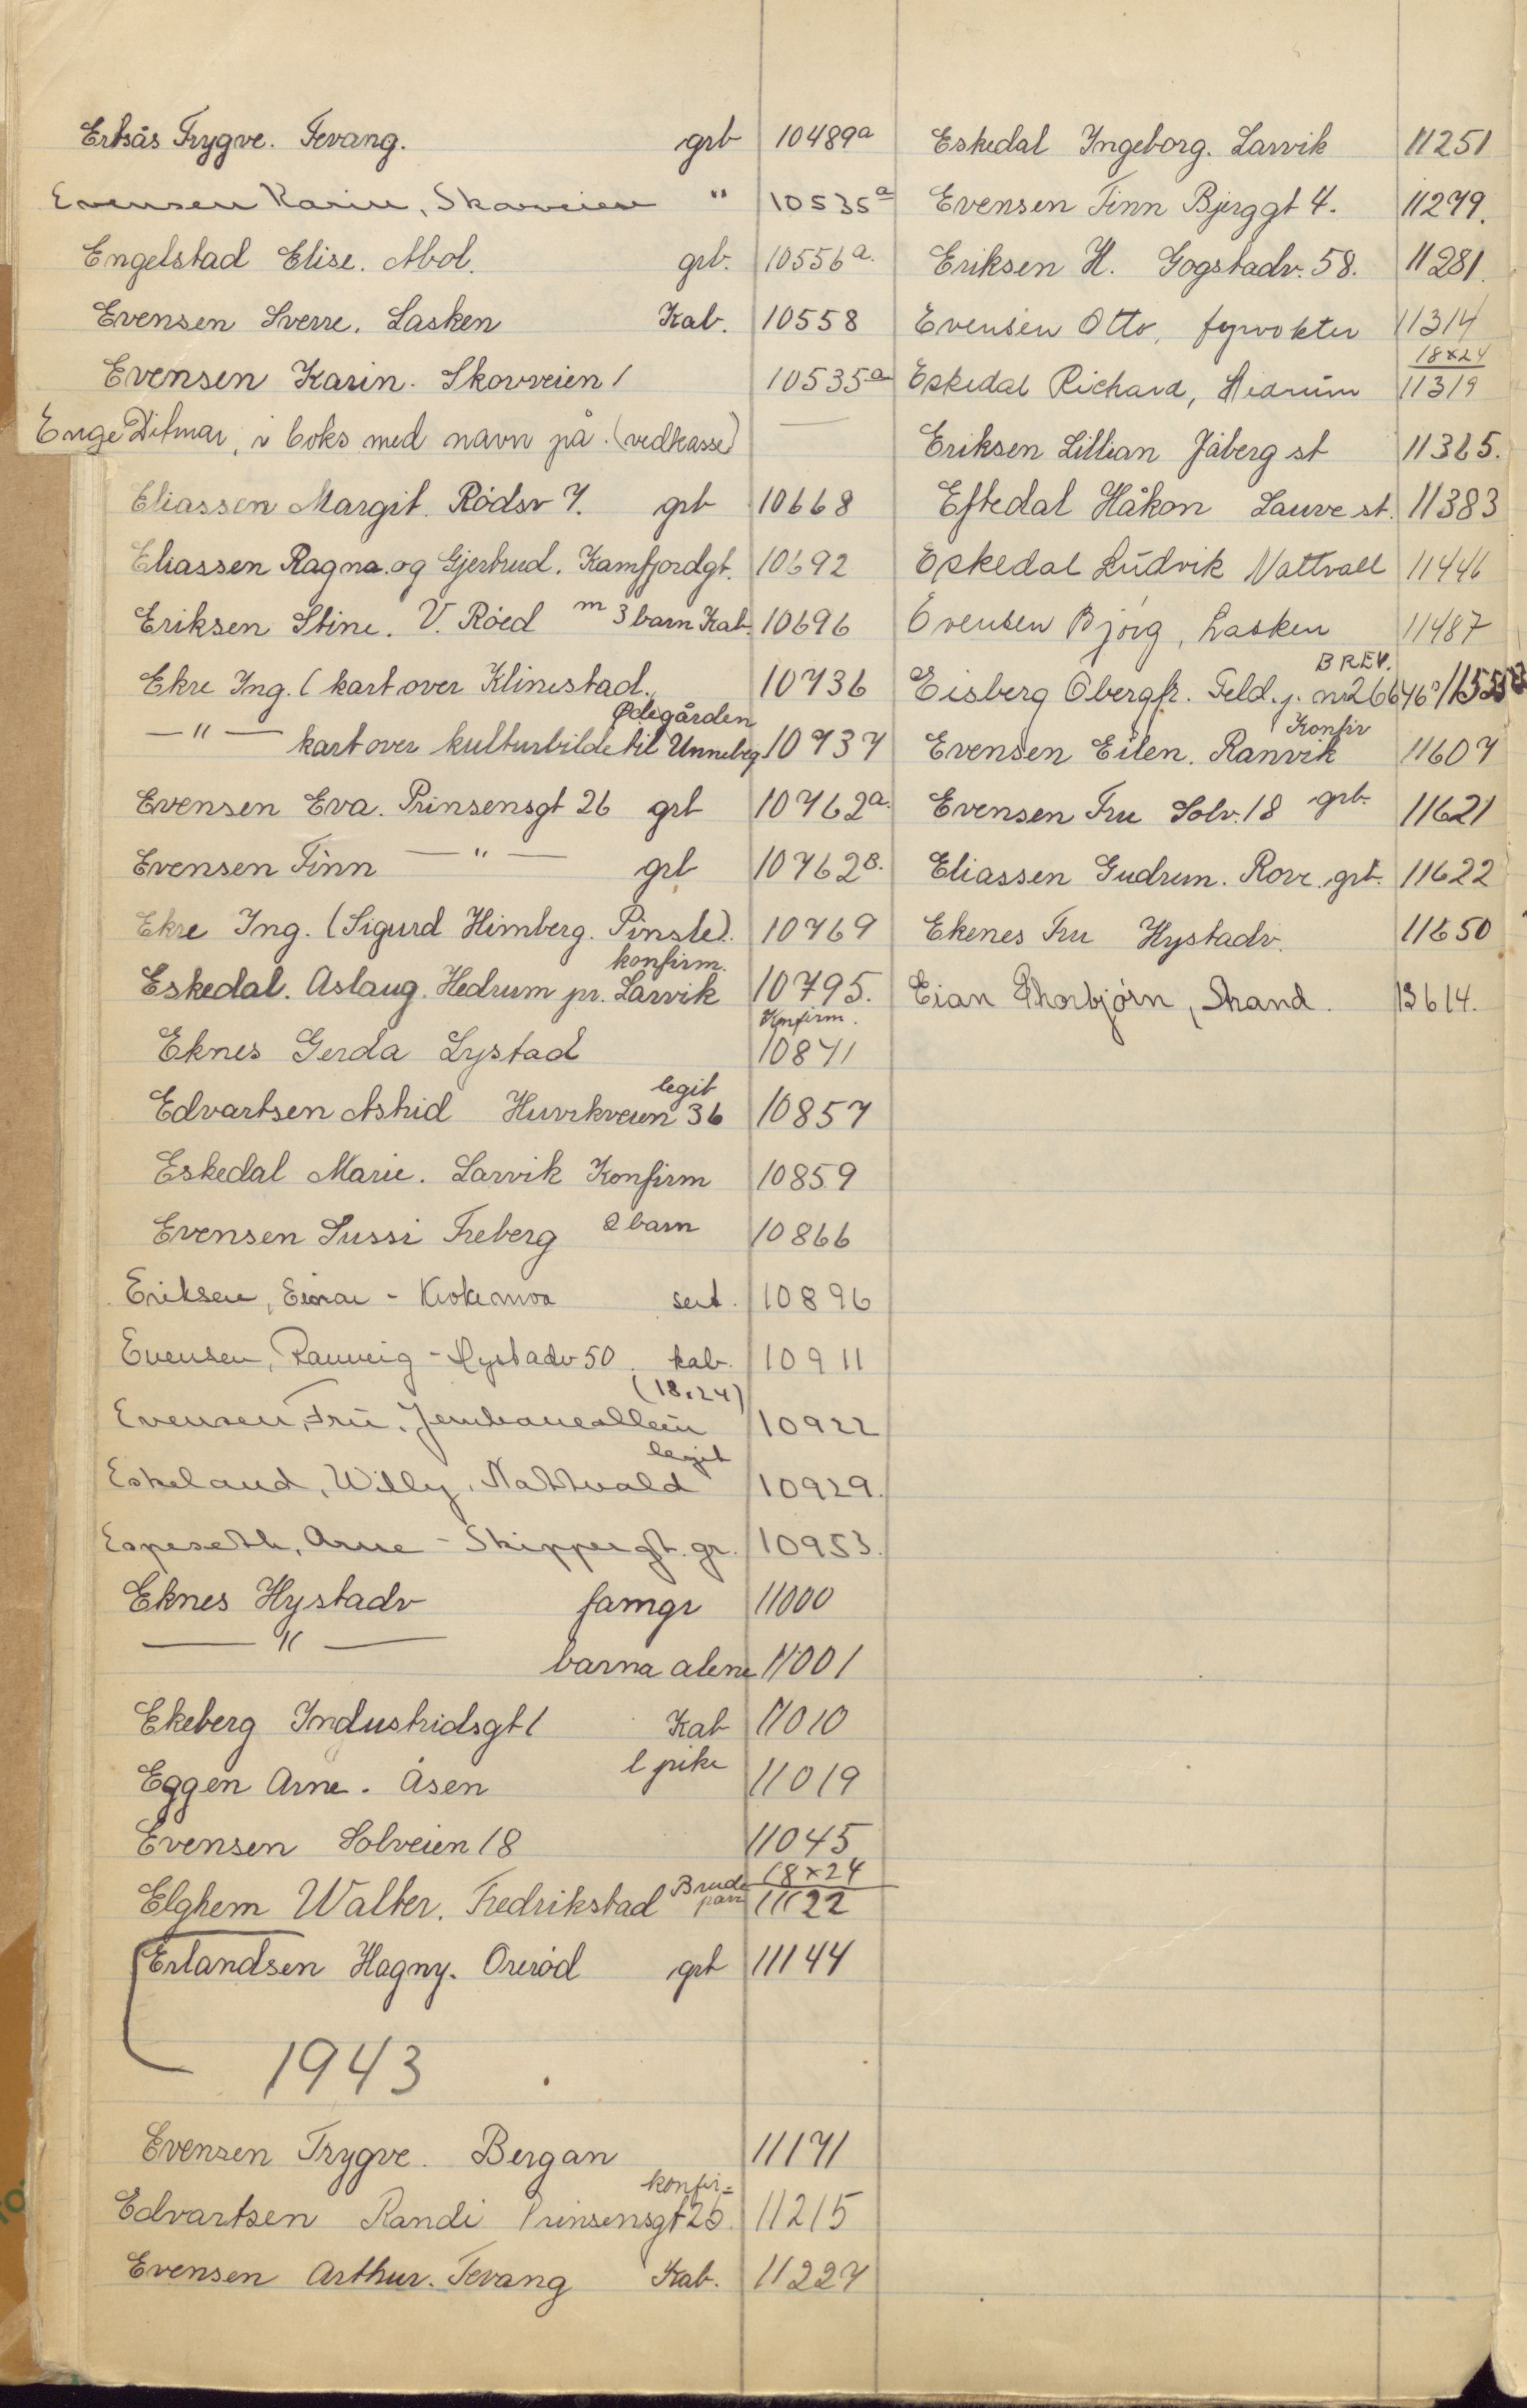 Ertsås Trygve. Tevang. grb 10489a
Evensen Karin, Skovveien " 10535a
Engelstad Elise. Abol. grb. 10556a.
Evensen Sverre. Lasken Kab. 10558
Evensen Karin. Skovveien 1 10535a
Enge Ditmar, i boks med navn på. (vedkasse) —
Eliassen Margit. Rødsv 7. grb 10668
Eliassen Ragna og Gjertrud. Kamfjordgt. 10692
Eriksen Stine. V. Røed m 3 barn Kab. 10696
Ekre Ing. (kart over Klinestad. 10736
Ødegården
—"— kart over kulturbilde til Unneberg 10737
Evensen Eva. Prinsensgt 26 grb 10762a.
Evensen Finn —"— grb 10762B.
Ekre Ing. (Sigurd Himberg. Pinsle). 10769
konfirm.
Eskedal. Aslaug. Hedrum pr. Larvik 10795.
Konfirm.
Eknes Gerda Lystad 10871
legit
Edvartsen Astrid Huvikveien 36 10857
Eskedal Marie. Larvik Konfirm 10859
Evensen Sussi Freberg 2 barn 10866
Eriksen, Einar - Krokemoa sert. 10896
Evensen, Rannveig - Hystadv 50. kab. 10911
(18x24)
Evensen, Fru. Jernbanealleen 10922
legit
Eskeland, Willy. Nattvald 10929.
Espeseth, Arne - Skippergt. gr. 10953.
Eknes Hystadv famgr 11000
—"— barna alene 11001
Ekeberg Industridsgt 1 Kab 11010
Eggen Arne. Åsen l pike 11019
Evensen Solveien 18 11045
18x24
Elghem Walter. Fredrikstad Brude par 11122
Erlandsen Hagny. Orerød grb 11144
1943
Evensen Trygve. Bergan 11171
konfir=
Edvartsen Randi Prinsensgt 25. 11215
Evensen Arthur. Tevang Kab. 11227
Eskedal Ingeborg. Larvik 11251
Evensen Finn Bjerggt 4. 11279.
Eriksen H. Gogstadv. 58. 11281.
Evensen Otto, fyrvokter 11314
18x24
Eskedal Richard, Hedrum 11319
Eriksen Lillian Jåberg st 11365.
Eftedal Håkon Lauve st. 11383
Eskedal Ludvik Nattvall 11446
Evensen Bjørg, Lasken 11487
BREV.
Eisberg Obergfr. Feld.j. nr 26646
Konfir
Evensen Eilen. Ranvik 11607
Evensen Fru Solv. 18 grb. 11621
Eliassen Gudrun. Rove grb. 11622
Ekenes Fru Hystadv. 11650
Eian Thorbjørn, Strand. 13614.